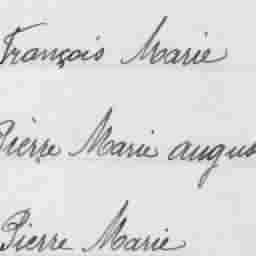 François Marie
Pierre Marie augus
Pierre Marie